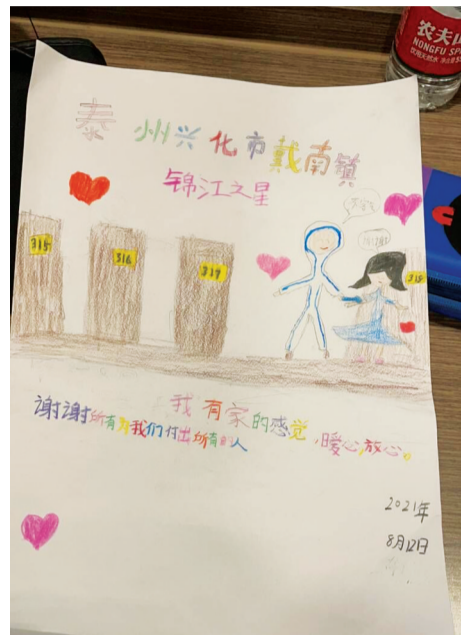 农夫山
NONGFU SP
泰州兴化市戴南镇
锦江之星
315
316
317
318
我有家的感觉,暖心,放心。
谢谢所有为我们付出所有的人
2021年
8月12日